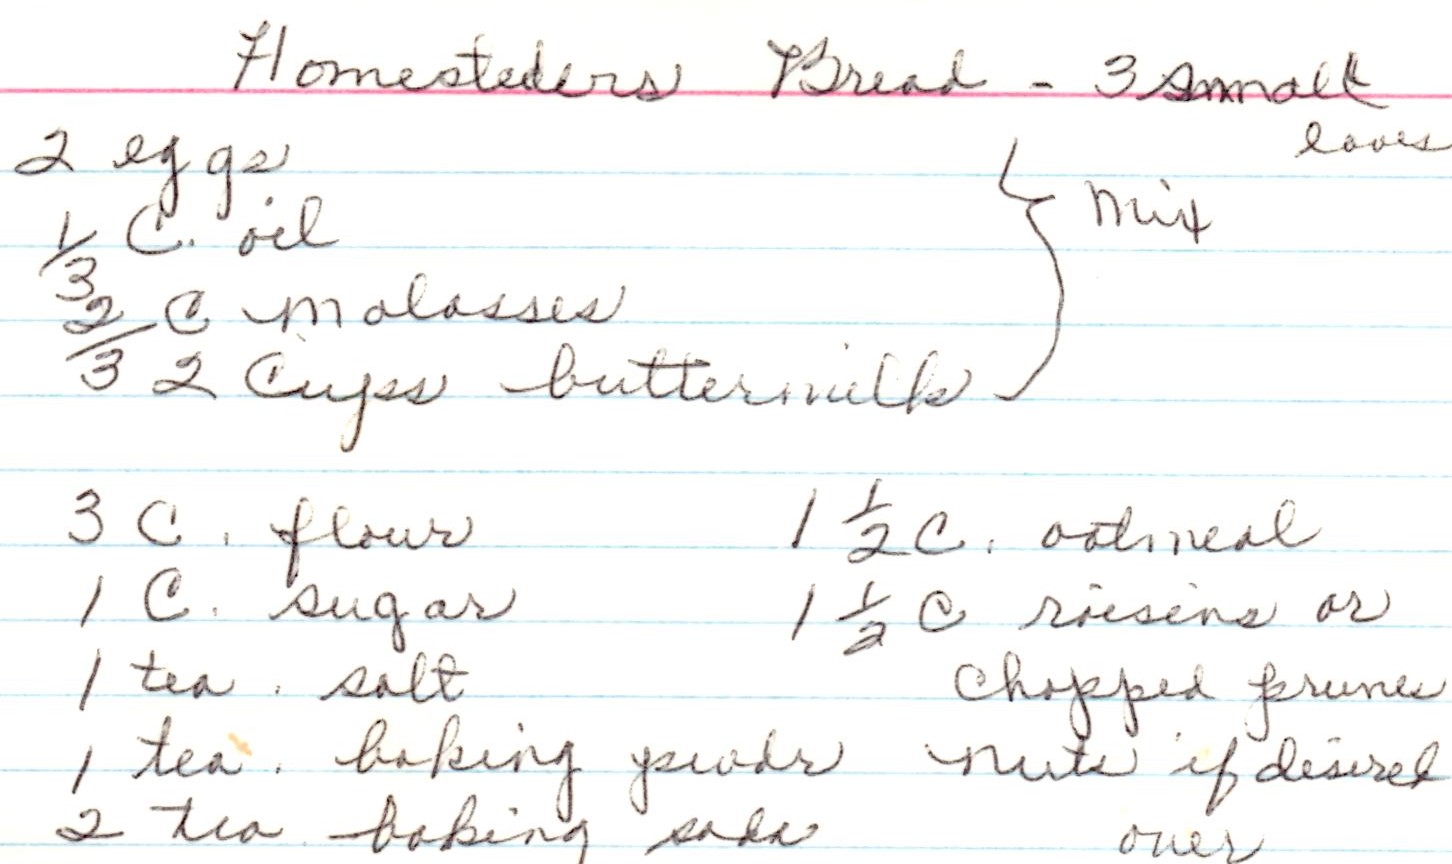 Homesteders Bread - 3 small
loves
2 eggs
1/3 C. oil
2/3 C molasses
2 Cups buttermilk
Mix
3 C. flour
1 C. sugar
1 tea. salt
1 tea. baking powdr
2 tea baking soda
1 1/2 C. oatmeal
1 1/2 C riesins or
chopped prunes
nuts if desired
over